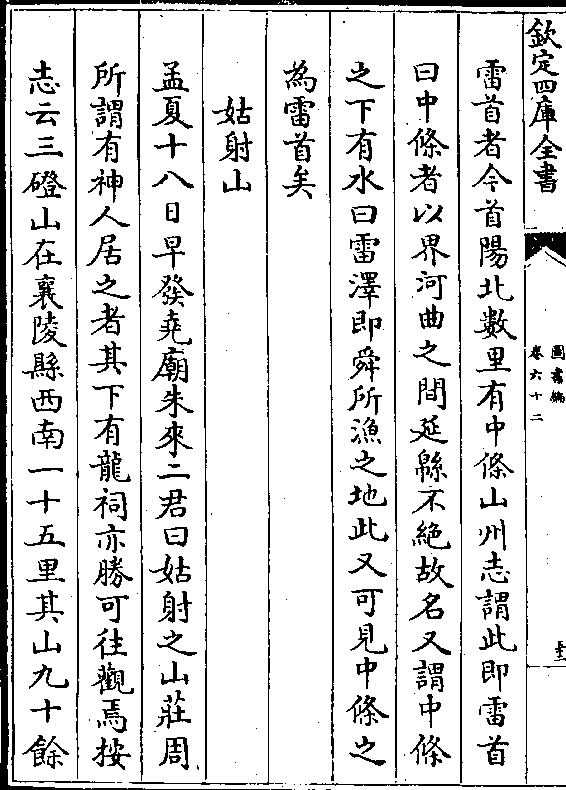 欽定四庫全書
圖書編
卷六十二
雷首者今首陽北數里有中條山州志謂此即雷首
曰中條者以界河曲之間延綿不絶故名又謂中條
之下有水曰雷澤即舜所漁之地此又可見中條之
為雷首矣
姑射山
孟夏十八日早發堯廟朱來二君曰姑射之山莊周
所謂有神人居之者其下有龍祠亦勝可往觀焉按
志云三磴山在襄陵縣西南一十五里其山九十餘